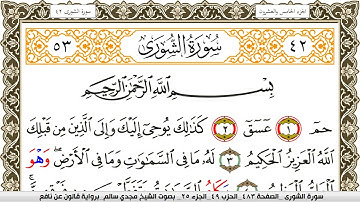 سورة الشورى ٤٢
الجزء الخامس والعشرون
٥٣ سُورَةُ الشُّورَىٰ ٤٢
بِسْمِ اللَّهِ الرَّحْمَٰنِ الرَّحِيمِ
حمٓ ١ عٓسٓقٓ ٢ كَذَٰلِكَ يُوحِىٓ إِلَيْكَ وَإِلَى ٱلَّذِينَ مِن قَبْلِكَ
ٱللَّهُ ٱلْعَزِيزُ ٱلْحَكِيمُ ٣ لَهُۥ مَا فِى ٱلسَّمَٰوَٰتِ وَمَا فِى ٱلْأَرْضِ وَهْوَ
سورة الشورى _ الصفحة ٤٨٣ _ الحزب ٤٩ _ الجزء ٢٥ _ بصوت الشيخ مجدي سالم _ برواية قالون عن نافع